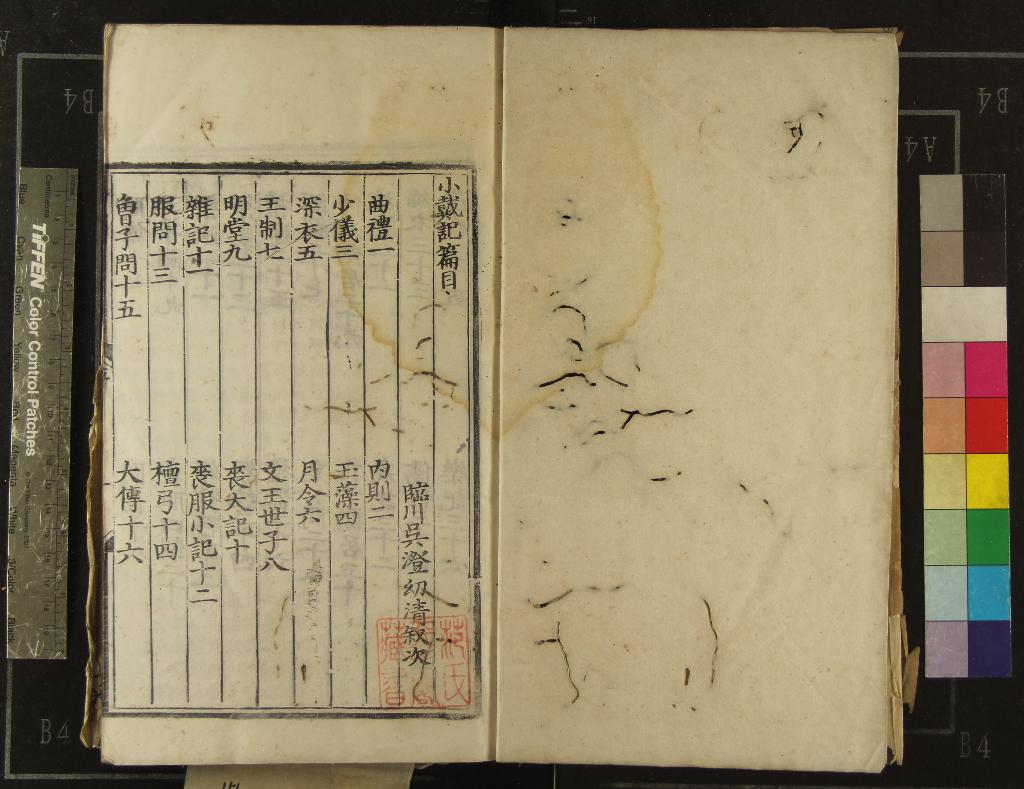 小戴記篇目
臨川吳澄幼清叙次
曲禮一 內則二
少儀三 玉藻四
深衣五 月令六
王制七 文王世子八
明堂九 喪大記十
雜記十一 喪服小記十二
服問十三 檀弓十四
曾子問十五 大傳十六
B4
A4
B4
B4
B4
TIFFEN Color Control Patches
Centimetres
Blue
Cyan
Green
Yellow
Red
Magenta
White
3/Color
Black